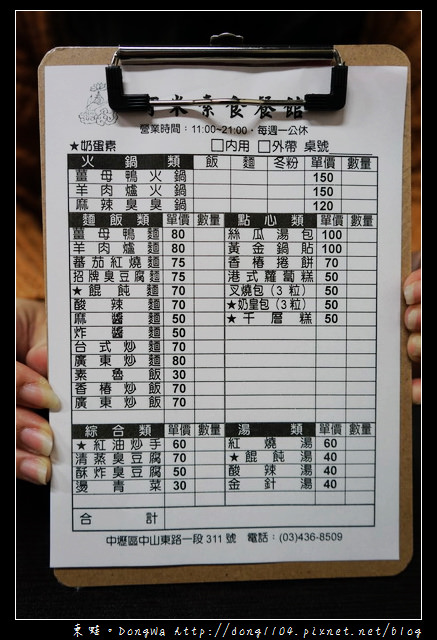 米素食餐館
營業時間：11:00~21:00，每週一公休
★奶蛋素 □內用 □外帶 桌號
火鍋類 飯 麵 冬粉 單價 數量
薑母鴨火鍋 150
羊肉爐火鍋 150
麻辣臭臭鍋 120
麵飯類 單價 數量
薑母鴨麵 80
羊肉爐麵 80
蕃茄紅燒麵 75
招牌臭豆腐麵 75
★餛飩麵 70
酸辣麵 70
麻醬麵 50
炸醬麵 50
台式炒麵 70
廣東炒麵 80
素魯飯 30
香椿炒飯 70
廣東炒飯 70
點心類 單價 數量
絲瓜湯包 100
黃金鍋貼 100
香椿捲餅 70
港式蘿蔔糕 50
叉燒包（3粒） 50
★奶皇包（3粒） 50
★千層糕 50
綜合類 單價 數量
★紅油炒手 60
清蒸臭豆腐 70
酥炸臭豆腐 50
燙青菜 30
湯類 單價 數量
紅燒湯 60
★餛飩湯 40
酸辣湯 40
金針湯 40
合計
中壢區中山東路一段311號 電話：(03)436-8509
東蛙。DongWa http://dong1104.pixnet.net/blog